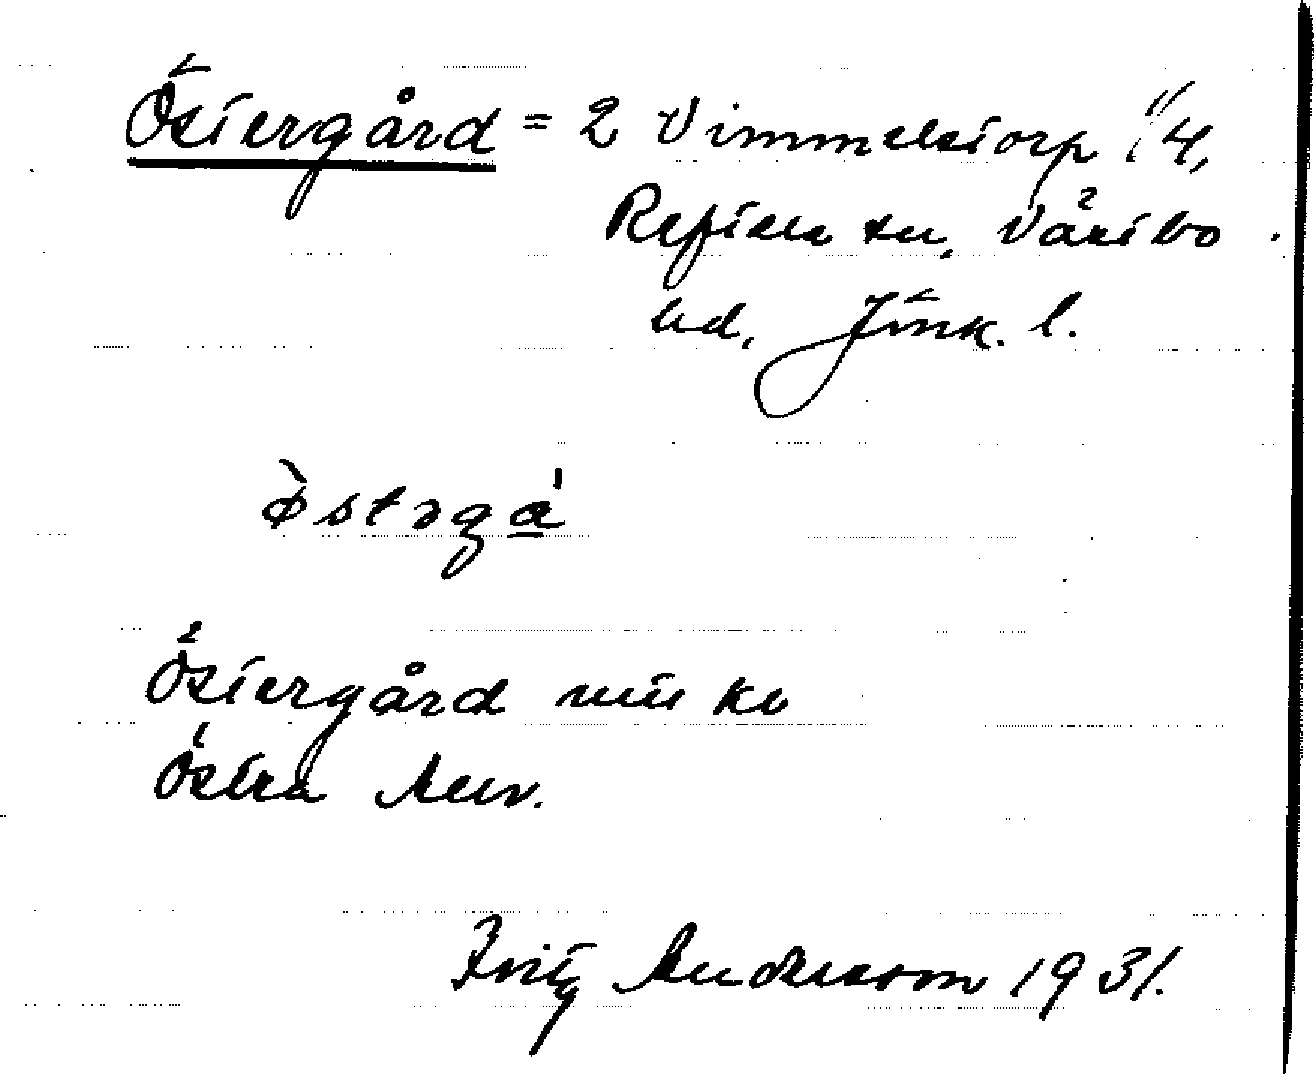 Östergård = 2 Vimmelstorp 1/4,
Reftele sn, Västbo
hd, Jönk. l.
östəgá
Östergård
Östra
Fritz Andersson 1931.